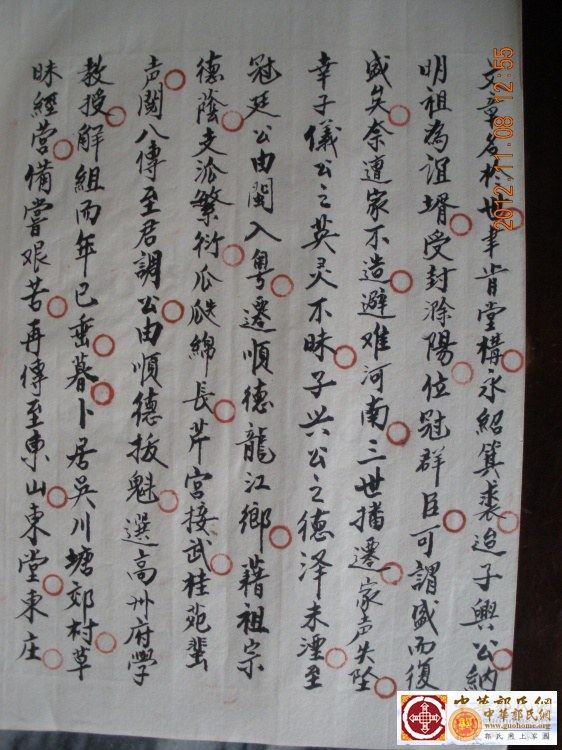 文章名於世聿肯堂構永紹箕裘迨子興公納
明祖為誼壻受封滁陽位冠群臣可謂盛而復
盛矣奈遭家不造避难河南三世播遷家声失墜
幸子儀公之英灵不昧子兴公之德泽未湮至
冠廷公由閩入粤遷順德龍江鄉藉祖宗
德蔭支派繁衍瓜瓞綿長芹宮接武桂苑蜚
声閱八傳至君調公由順德拔魁選高州府學
教授解組而年已垂暮卜居吳川塘郊村草
昧經营備嘗艰苦再傳至東山東堂東庄
2012.11.08 12:55
中華郭氏網
中華郭氏網
www.guohome.org
郭氏網上家園